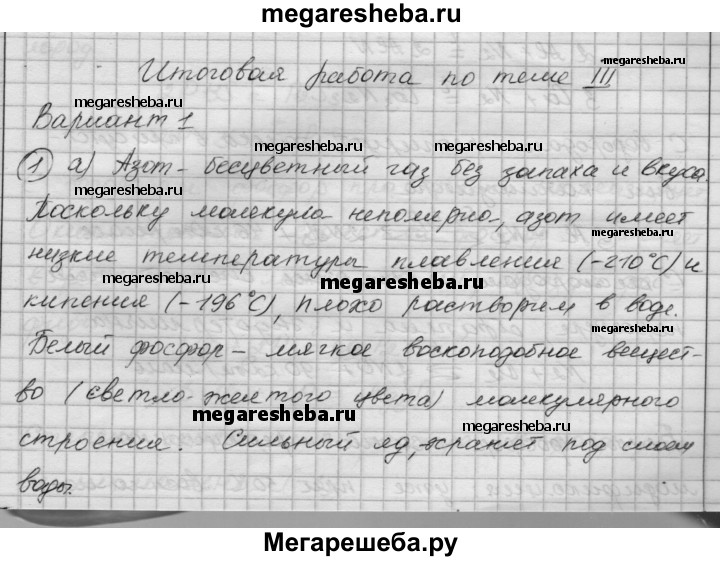 megaresheba.ru
megaresheba.ru
Итоговая работа по теме III
megaresheba.ru
Вариант 1
megaresheba.ru
megaresheba.ru
1 а) Азот - бесцветный газ без запаха и вкуса.
megaresheba.ru
Поскольку молекула неполярно, азот имеет
низкие температуры плавления (-210°С) и
megaresheba.ru
megaresheba.ru
кипения (-196°С), плохо растворим в воде.
megaresheba.ru
Белый фосфор - мягкое воскоподобное вещест-
во (светло-желтого цвета) молекулярного
megaresheba.ru
строения. Сильный яд, хранят под слоем
воды.
Мегарешеба.ру